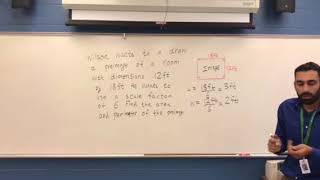 Wilson wants to a draw
a preimage of a room
with dimensions 12ft
by 18ft He wants to
use a scale factor
of 6 Find the area
and perimeter of the preimage
18ft
Image
12ft
= 18ft = 3ft
6
= 12ft = 2ft
6